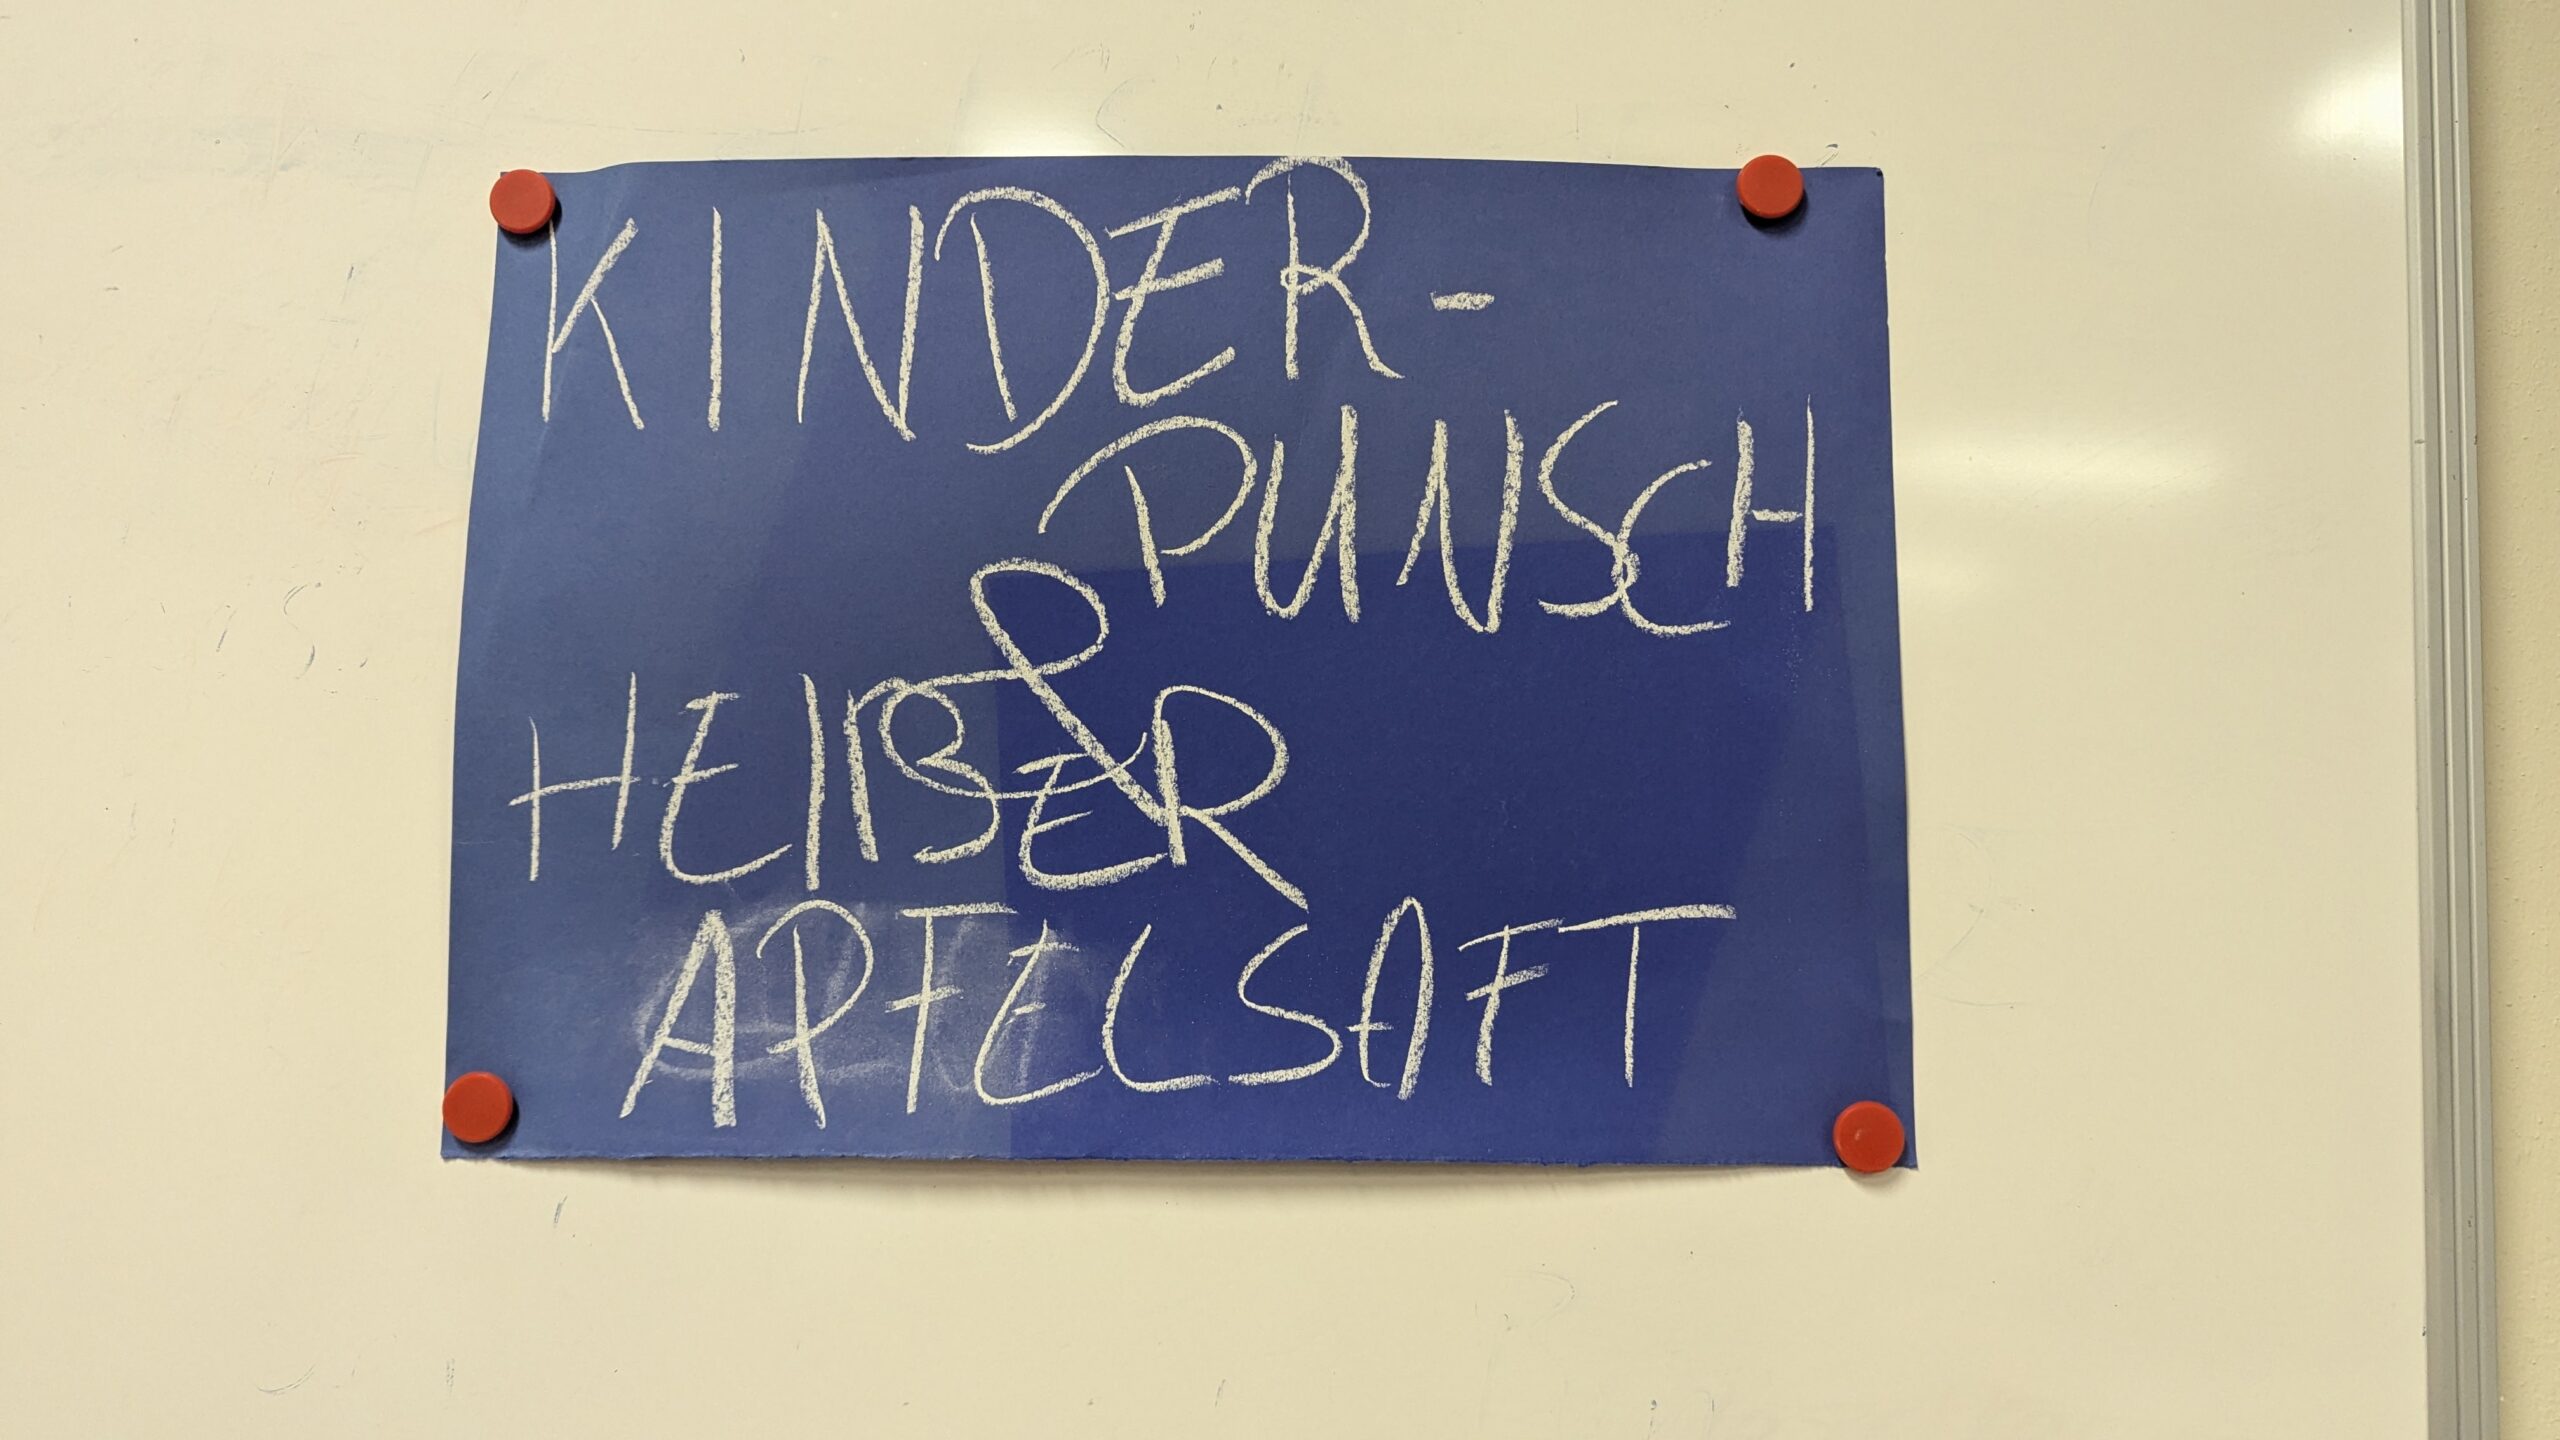 KINDER-
PUNSCH
&
HEIßER
APFELSAFT